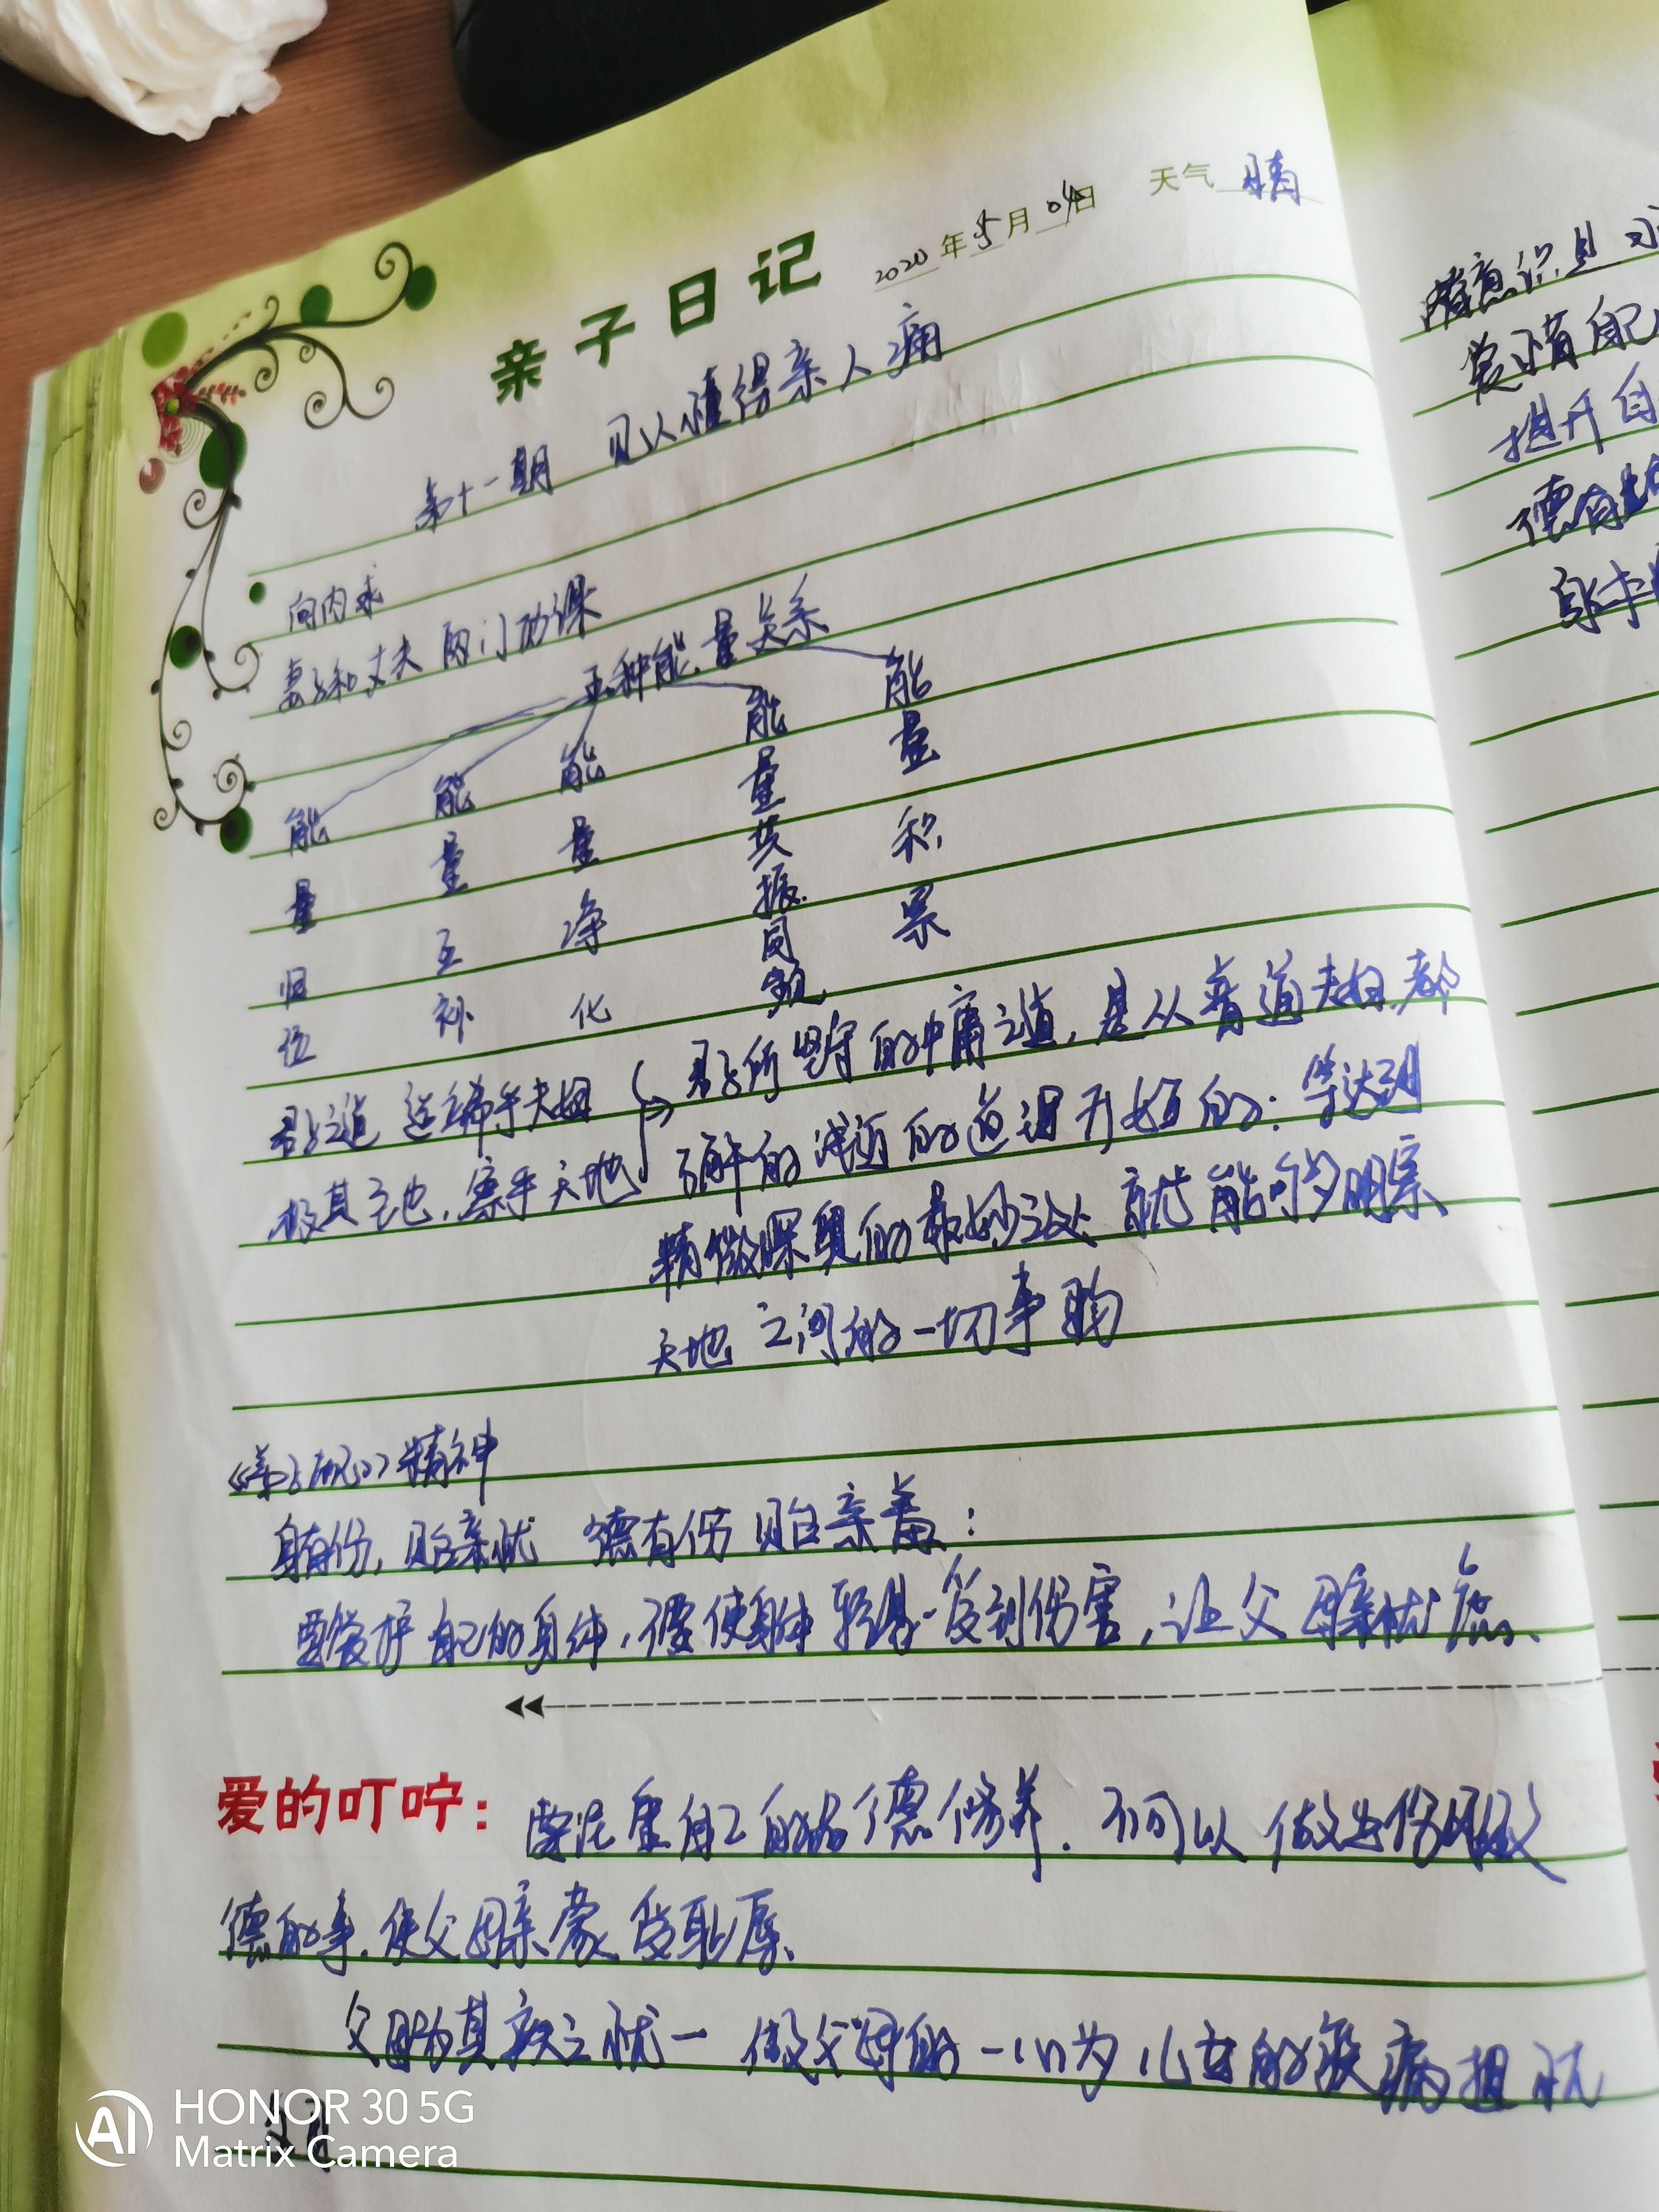 亲子日记
2020年5月04日 天气 晴
第十一期 见人懂得亲人痛
向内求
妻子和丈夫 两门功课
五种能量关系
能量归位
能量互补
能量净化
能量共振同频
能量积累
君子之道 造端乎夫妇
极其至也,察乎天地
君子所坚守的中庸之道,是从普通夫妇都
了解的浅近的道理开始的:等达到
精微深奥的最妙之处 就能够明察
天地之间的一切事物
《弟子规》精神
身有伤,贻亲忧 德有伤 贻亲羞:
要爱护自己的身体,不要使身体轻易受到伤害,让父母亲忧虑、
爱的叮咛:要注重自己的品德修养.不可以做出伤风败
德的事.使父母亲蒙受耻辱、
父母为其疾之忧一 做父母的一心为儿女的疾病担忧
有意识且
爱惜自己
提升自
德有
HONOR 30 5G
Matrix Camera
AI